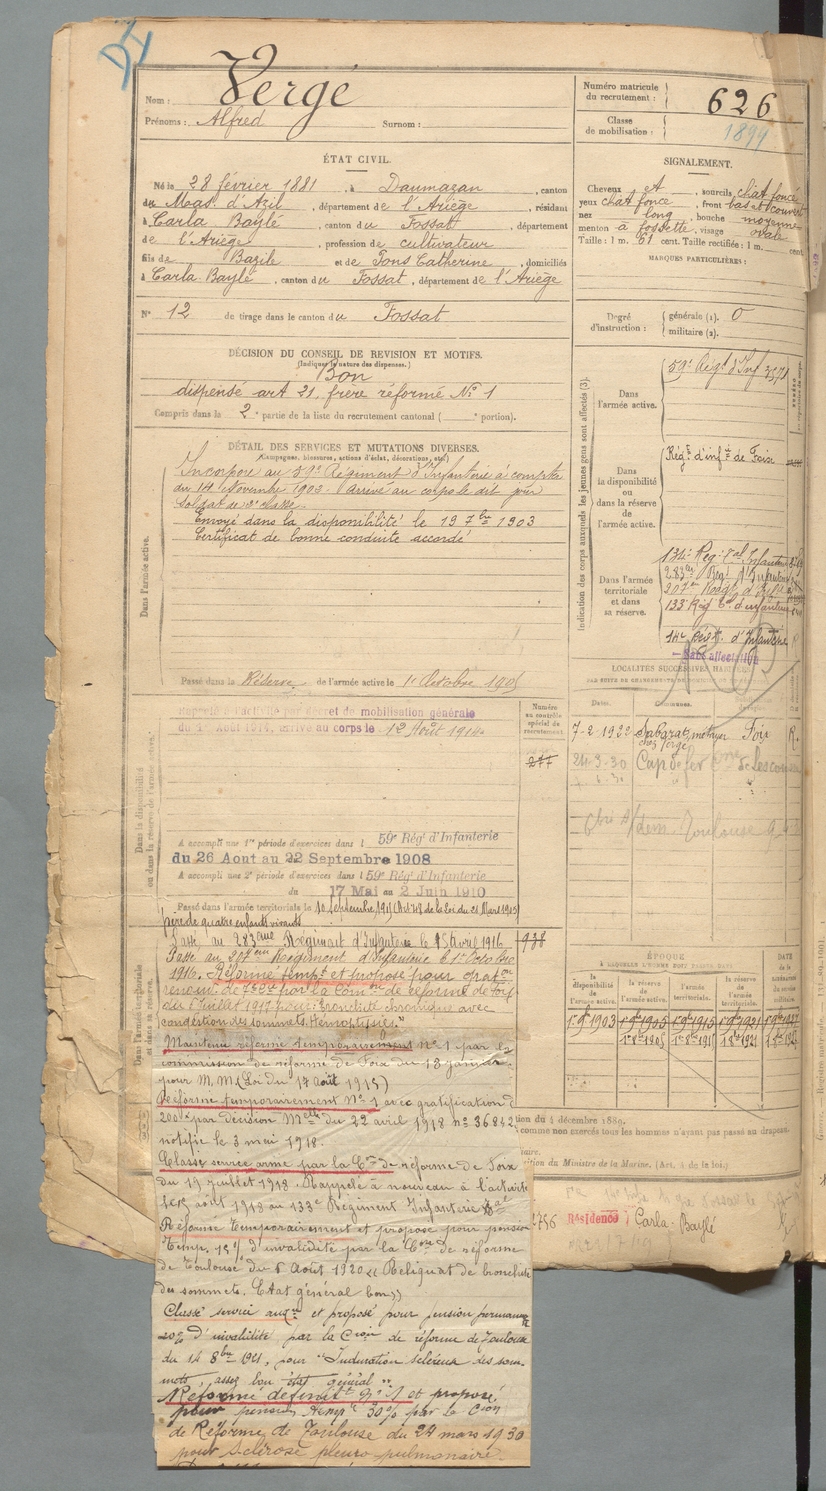 Nom : Vergé
Prénoms : Alfred Surnom :
Numéro matricule du recrutement : 626
Classe de mobilisation : 1899
ÉTAT CIVIL.
Né le 28 février 1881, à Daumazan, canton
du Mas d'Azil, département de l'Ariège, résidant
à Carla Baylé, canton du Fossat, département
de l'Ariège, profession de cultivateur
fils de Bazile et de Pons Catherine, domiciliés
à Carla Baylé, canton du Fossat, département de l'Ariège
N° 12 de tirage dans le canton du Fossat
SIGNALEMENT.
Cheveux et, sourcils chat foncé
yeux chat foncé, front bas et couvert
nez long, bouche moyenne
menton à fossette, visage ovale
Taille : 1 m. 61 cent. Taille rectifiée : 1 m. cent.
MARQUES PARTICULIÈRES :
Degré d'instruction : générale (1). 0
militaire (2).
DÉCISION DU CONSEIL DE REVISION ET MOTIFS.
(Indiquer la nature des dispenses.)
Bon
dispensé art 21, frère réformé N° 1
Compris dans la 2e partie de la liste du recrutement cantonal ( portion).
DÉTAIL DES SERVICES ET MUTATIONS DIVERSES.
(Campagnes, blessures, actions d'éclat, décorations, etc.)
Dans l'armée active.
Incorporé au 59e Régiment d'Infanterie à compter
du 14 Novembre 1902. Arrivé au corps le dit jour
Soldat de 2e classe.
Envoyé dans la disponibilité le 19 7bre 1903
Certificat de bonne conduite accordé
Passé dans la Réserve de l'armée active le 1er Octobre 1905
Indication des corps auxquels les jeunes gens sont affectés (3).
Dans l'armée active.
59e Régt d'Inf 3571
Dans la disponibilité ou dans la réserve de l'armée active.
Régt d'infie de Foix
Dans l'armée territoriale et dans sa réserve.
134e Rég. Tal Infanterie
283e Régt d'Infanterie
207e Régt d'Infie
133e Rég d'infanterie
14e Régt d'Infanterie
Sans affectation
LOCALITÉS SUCCESSIVES HABITÉES
Dates. Communes.
7-2-1922 Sabarat, métayer Foix R.
chez Forge
24-3-30 Cap de fer
Toulouse
Dans la disponibilité ou dans la réserve de l'armée active.
Rappelé à l'activité par décret de mobilisation générale
du 1er Août 1914, arrivé au corps le 12 Août 1914.
Numéro au contrôle spécial du recrutement
277
A accompli une 1re période d'exercices dans l 59e Régt d'Infanterie
du 26 Aout au 22 Septembre 1908
A accompli une 2e période d'exercices dans l 59e Régt d'Infanterie
du 17 Mai au 2 Juin 1910
Passé dans l'armée territoriale le 10 septembre 1915 (Art 48 de la Loi du 21 Mars 1905)
père de quatre enfants vivants
Dans l'armée territoriale et dans sa réserve.
Passé au 283ème Régiment d'Infanterie le 15 Avril 1916 938
Passé au 207ème Régiment d'Infanterie le 1er Octobre
1916. Réformé tempt et proposé pour graton
renouv. de 7e Cie par la Comon de réforme de Foix
du 6 Juillet 1917 pour: "Bronchite chronique avec
condention des sommets. Hemoptisies."
Maintenu réformé temporairement N° 1 par la
commission de réforme de Foix du 13 janvier
pour M.M. (Loi du 17 août 1915)
Réformé temporairement N° 1 avec gratification de
200f par décision Melle du 22 avril 1918 n° 36842
notifié le 3 mai 1918.
Classé service armé par la Con de réforme de Foix
du 19 juillet 1918. Rappelé à nouveau à l'activité
août 1918 au 133e Régiment Infanterie Tal
Réformé temporairement et proposé pour pension
temp. 15% d'invalidité par la Con de réforme
de Toulouse du 6 Août 1920 "Reliquat de bronchite
des sommets. Etat général bon"
Classé service auxre et proposé pour pension permanente
20% d'invalidité par la Cion de réforme de Toulouse
du 14 8bre 1921, pour "Induration scléreuse des som-
mets, assez bon état général"
Réformé définitt N° 1 et proposé
pour pension temp re 30% par la Cion
de Réforme de Toulouse du 24 mars 1930
pour Sclérose pleuro pulmonaire.
ÉPOQUE
À LAQUELLE L'HOMME DOIT PASSER DANS
la disponibilité de l'armée active. la réserve de l'armée active. l'armée territoriale. la réserve de l'armée territoriale. DATE de la libération du service militaire.
1er 9bre 1903 1er 9bre 1905 1er 9bre 1915 1er 9bre 1921 1er 9bre 1927
1er 8bre 1905 1er 8bre 1915 1er 8bre 1921
tion du 4 décembre 1889.
comme non exercés tous les hommes n'ayant pas passé au drapeau.
ition du Ministre de la Marine. (Art. 4 de la loi.)
2756 Résidence Carla-Baylé